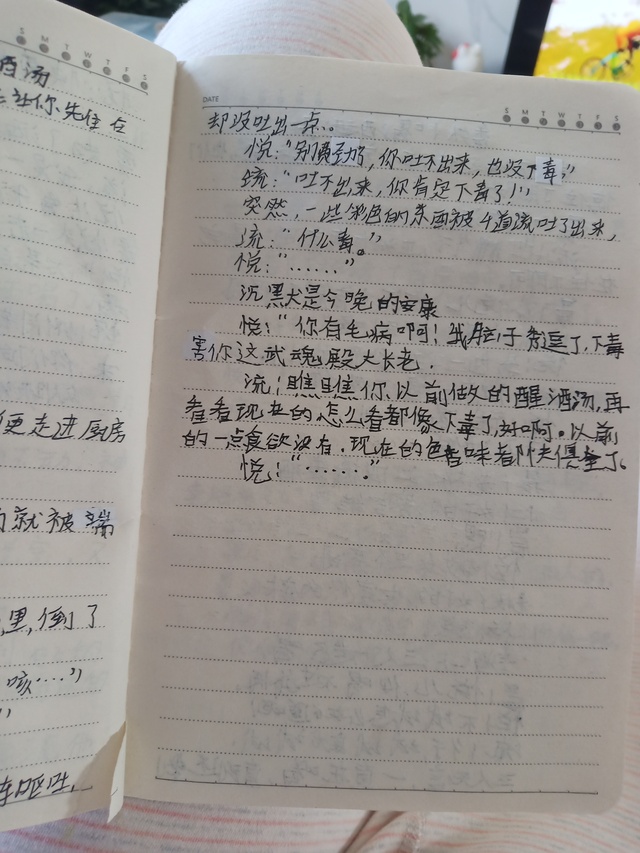 酒汤
你先住
便走进厨房
就被端
里,倒了
咳……”
呕吐,
DATE
S M T W T F S
S M T W T F S
却没吐出一点。
悦:“别费劲了,你吐不出来,也没下毒。”
疏:“吐不出来,你肯定下毒了!”
突然,一些的东西被流吐了出来,
流:“什么毒。”
悦:“……”
沉默是今晚的安康
悦:“你有毛病啊!我脑子秀逗了,下毒
害你这武魂殿大长老.
流:瞧瞧你以前做的醒酒汤,再
看看现在的怎么看都像下毒了,好啊。以前
的一点食欲没有,现在的色香味都俱全了。
悦:“……”